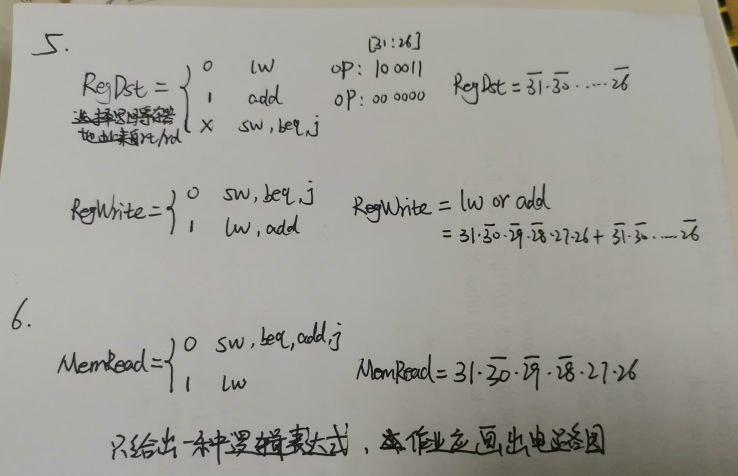 5.
[31:26]
RegDst = { 0 lw OP: 100011
1 add OP: 000000
X sw, beq, j
RegDst = 3̅1̅·3̅0̅·····2̅6̅
选择写回寄存器
地址来自rt/rd
RegWrite = { 0 sw, beq, j
1 lw, add
RegWrite = lw or add
= 31·3̅0̅·2̅9̅·2̅8̅·27·26 + 3̅1̅·3̅0̅····2̅6̅
6.
MemRead = { 0 sw, beq, add, j
1 lw
MemRead = 31·3̅0̅·2̅9̅·2̅8̅·27·26
只给出一种逻辑表达式，作业应画出电路图